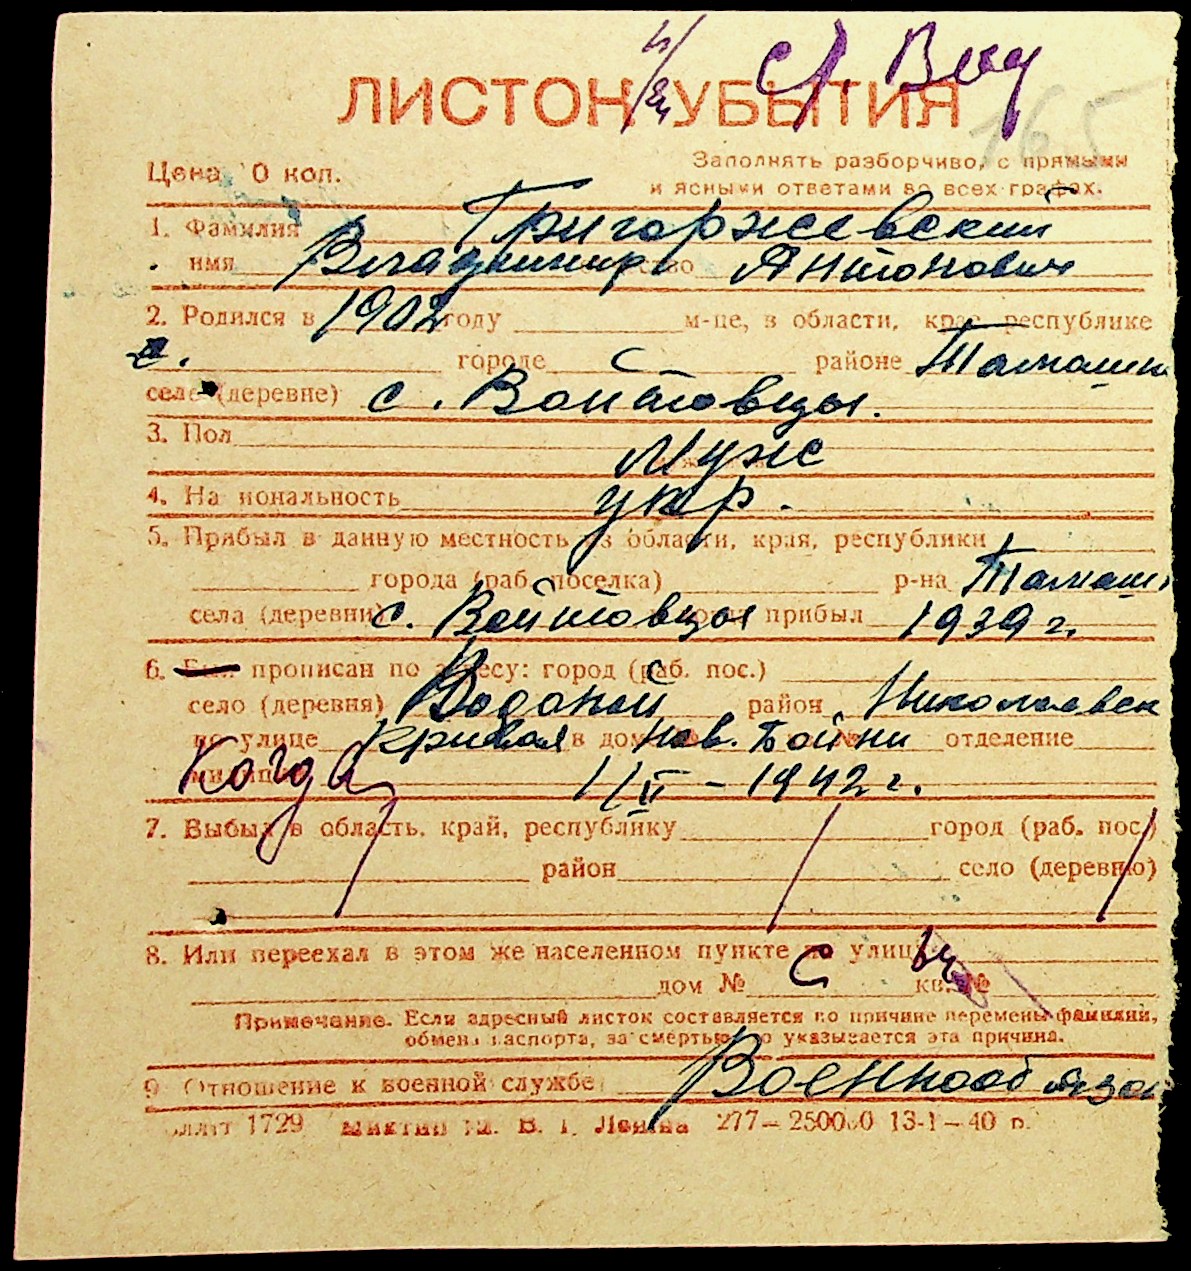 ЛИСТОК УБЫТИЯ
165
Цена 10 коп.
Заполнять разборчиво, с прямыми
и ясными ответами во всех графах.
1. Фамилия Григоржевский
имя Владимир отчество Антонович
2. Родился в 1902 году м-це, в области, крае, республике
городе с районе Томашп
село (деревне) с. Войтовцы.
3. Пол Муж
4. Национальность укр.
5. Прибыл в данную местность из области, края, республики
города (раб. поселка) р-на Томашп
села (деревни) с. Войтовцы прибыл 1939 г.
6. прописан по адресу: город (раб. пос.) с
село (деревня) Водопой район Николаевск
по улице Кривая в дом № Нов. Бойни отделение
милиции Когда 1/II – 1942 г.
7. Выбыл в область, край, республику город (раб. пос.)
район село (деревню)
8. Или переехал в этом же населенном пункте по улице
дом № кв. №
Примечание. Если адресный листок составляется по причине перемены фамилии,
обмена паспорта, за смертью, то указывается эта причина.
9 Отношение к военной службе Военнообязан
1729 им. В. І. Леніна 277–250000 13-1–40 р.